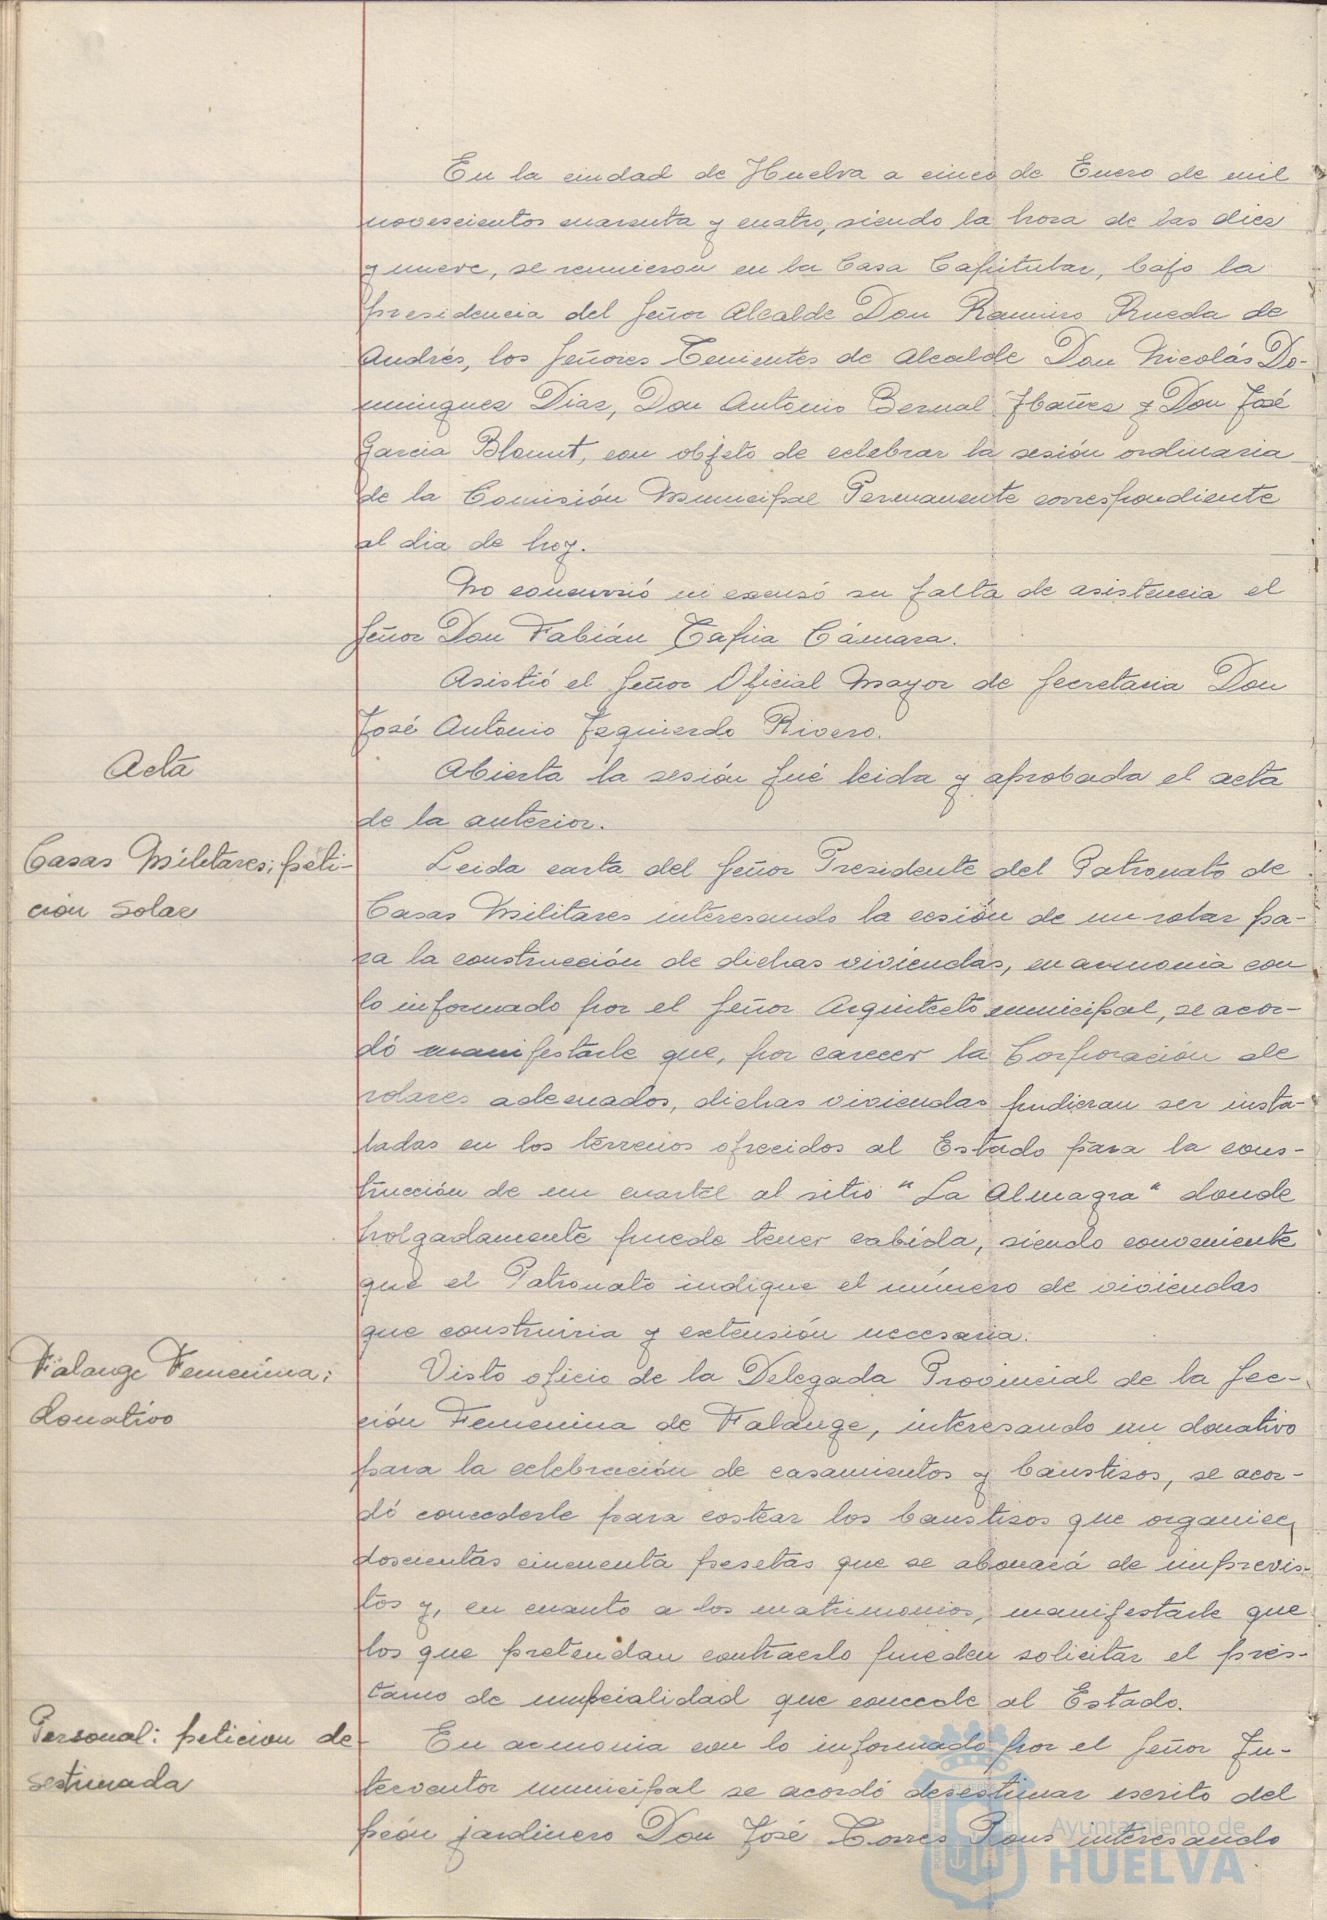 En la ciudad de Huelva a cinco de Enero de mil
novescientos cuarenta y cuatro, siendo la hora de las diez
y nueve, se reunieron en la Casa Capitular, bajo la
presidencia del Señor Alcalde Don Ramiro Rueda de
Andrés, los Señores Tenientes de Alcalde Don Nicolás Do-
minguez Diaz, Don Antonio Bernal Ibañez y Don José
Garcia Blount, con objeto de celebrar la sesión ordinaria
de la Comisión Municipal Permanente correspondiente
al dia de hoy.
No concurrió ni excusó su falta de asistencia el
Señor Don Fabián Tapia Cámara.
Asistió el Señor Oficial Mayor de Secretaria Don
José Antonio Izquierdo Rivero.
Acta
Abierta la sesión fué leida y aprobada el acta
de la anterior.
Casas Militares; peti-
cion solar
Leida carta del Señor Presidente del Patronato de
Casas Militares interesando la cesión de un solar pa-
ra la construcción de dichas viviendas, en armonia con
lo informado por el Señor Arquitecto municipal, se acor-
dó manifestarle que, por carecer la Corporación de
solares adecuados, dichas viviendas pudieran ser insta-
ladas en los terrenos ofrecidos al Estado para la cons-
trucción de un cuartel al sitio "La Almagra" donde
holgadamente puede tener cabida, siendo conveniente
que el Patronato indique el número de viviendas
que construiria y extensión necesaria.
Falange Femenina;
donativo
Visto oficio de la Delegada Provincial de la Sec-
ción Femenina de Falange, interesando un donativo
para la celebración de casamientos y baustisos, se acor-
dó concederle para costear los baustisos que organice,
doscientas cincuenta pesetas que se abonará de imprevis-
tos y, en cuanto a los matrimonios, manifestarle que
los que pretendan contraerlo pueden solicitar el prés-
tamo de nupcialidad que concede al Estado.
Personal: peticion de
sestimada
En armonia con lo informado por el Señor In-
terventor municipal se acordó desestimar escrito del
peón jardinero Don José Torres Pons interesando
Ayuntamiento de
HUELVA